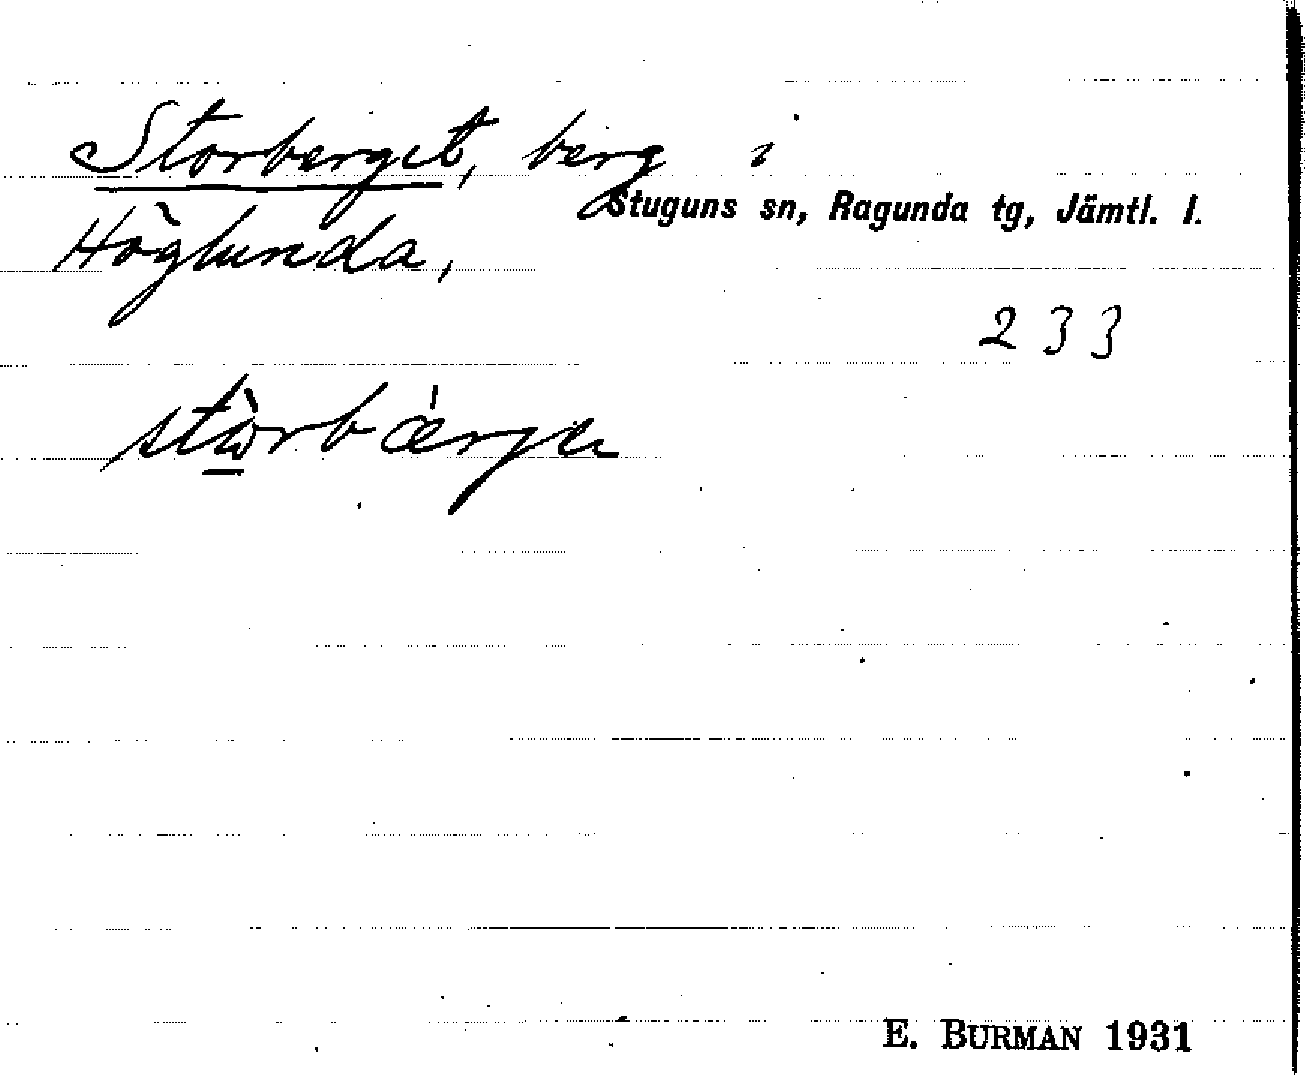 Storberget, berg i
Stuguns sn, Ragunda tg, Jämtl. l.
Höglunda,
233
stò̠rbærje
E. BURMAN 1931